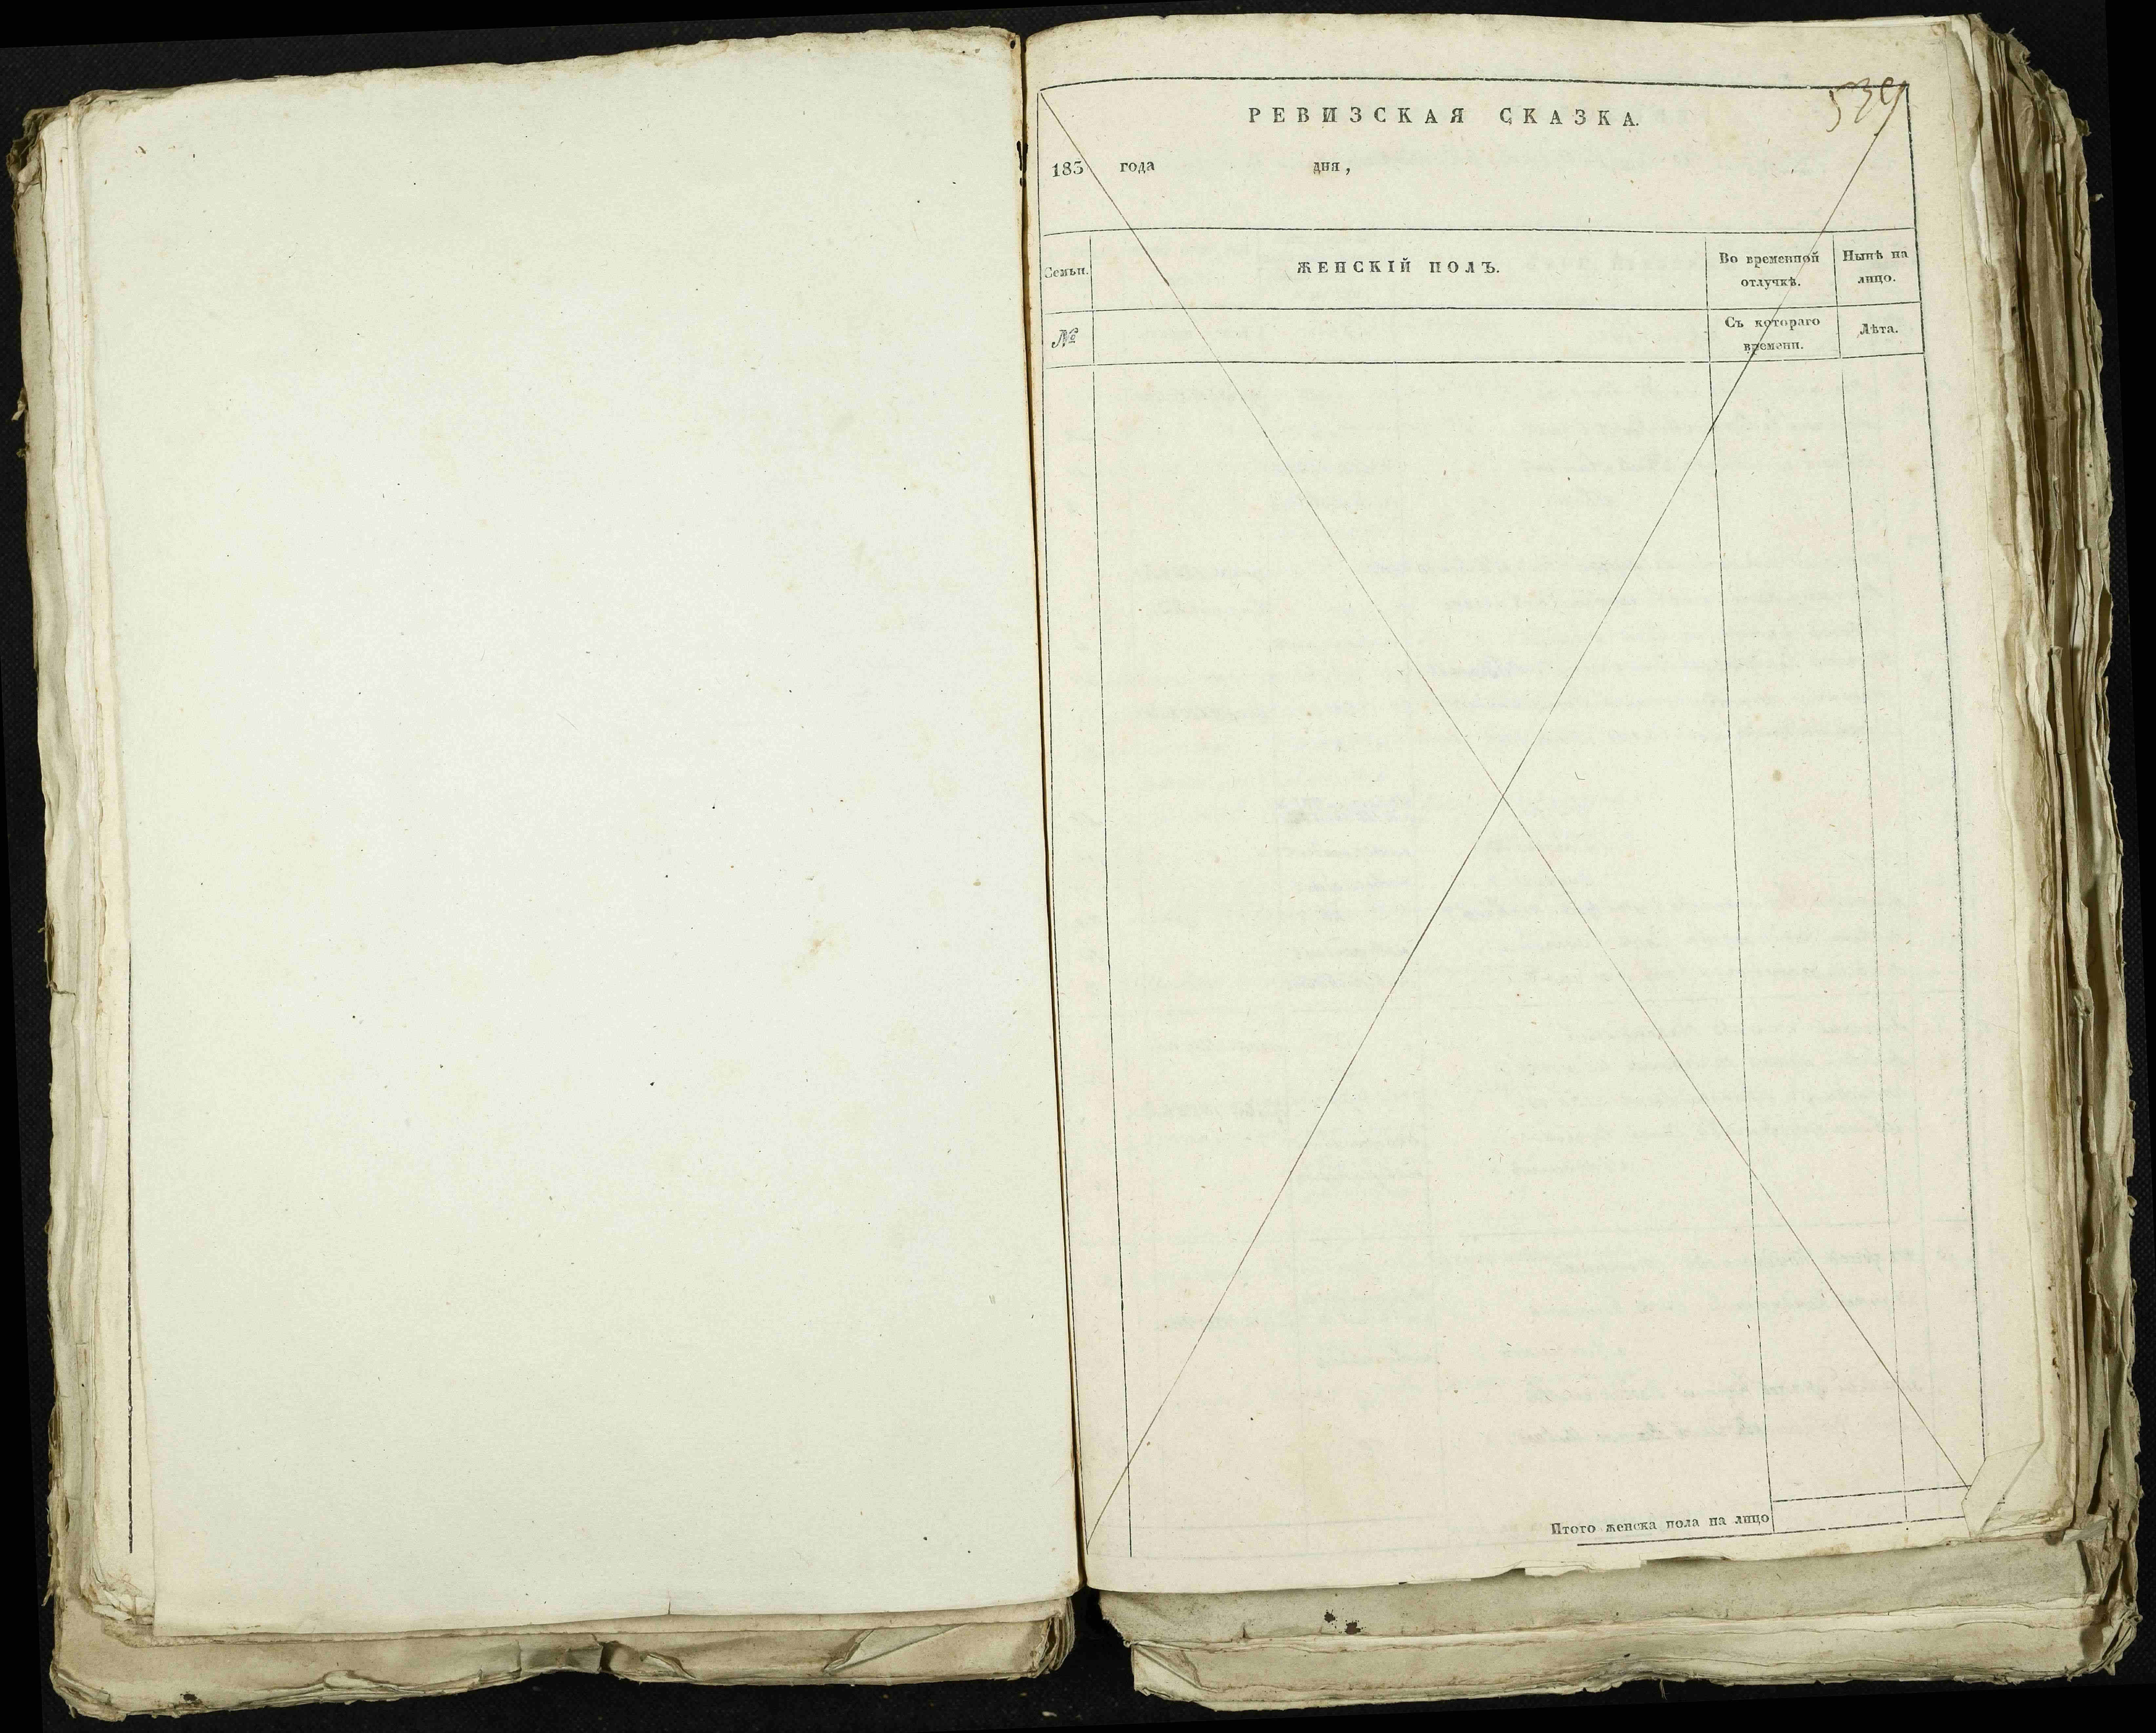 539
РЕВИЗСКАЯ СКАЗКА.
185 года дня,
Семьи. ЖЕНСКІЙ ПОЛЪ. Во временной отлучкѣ. Нынѣ на лицо.
№ Съ котораго времени. Лѣта.
Итого женска пола на лицо